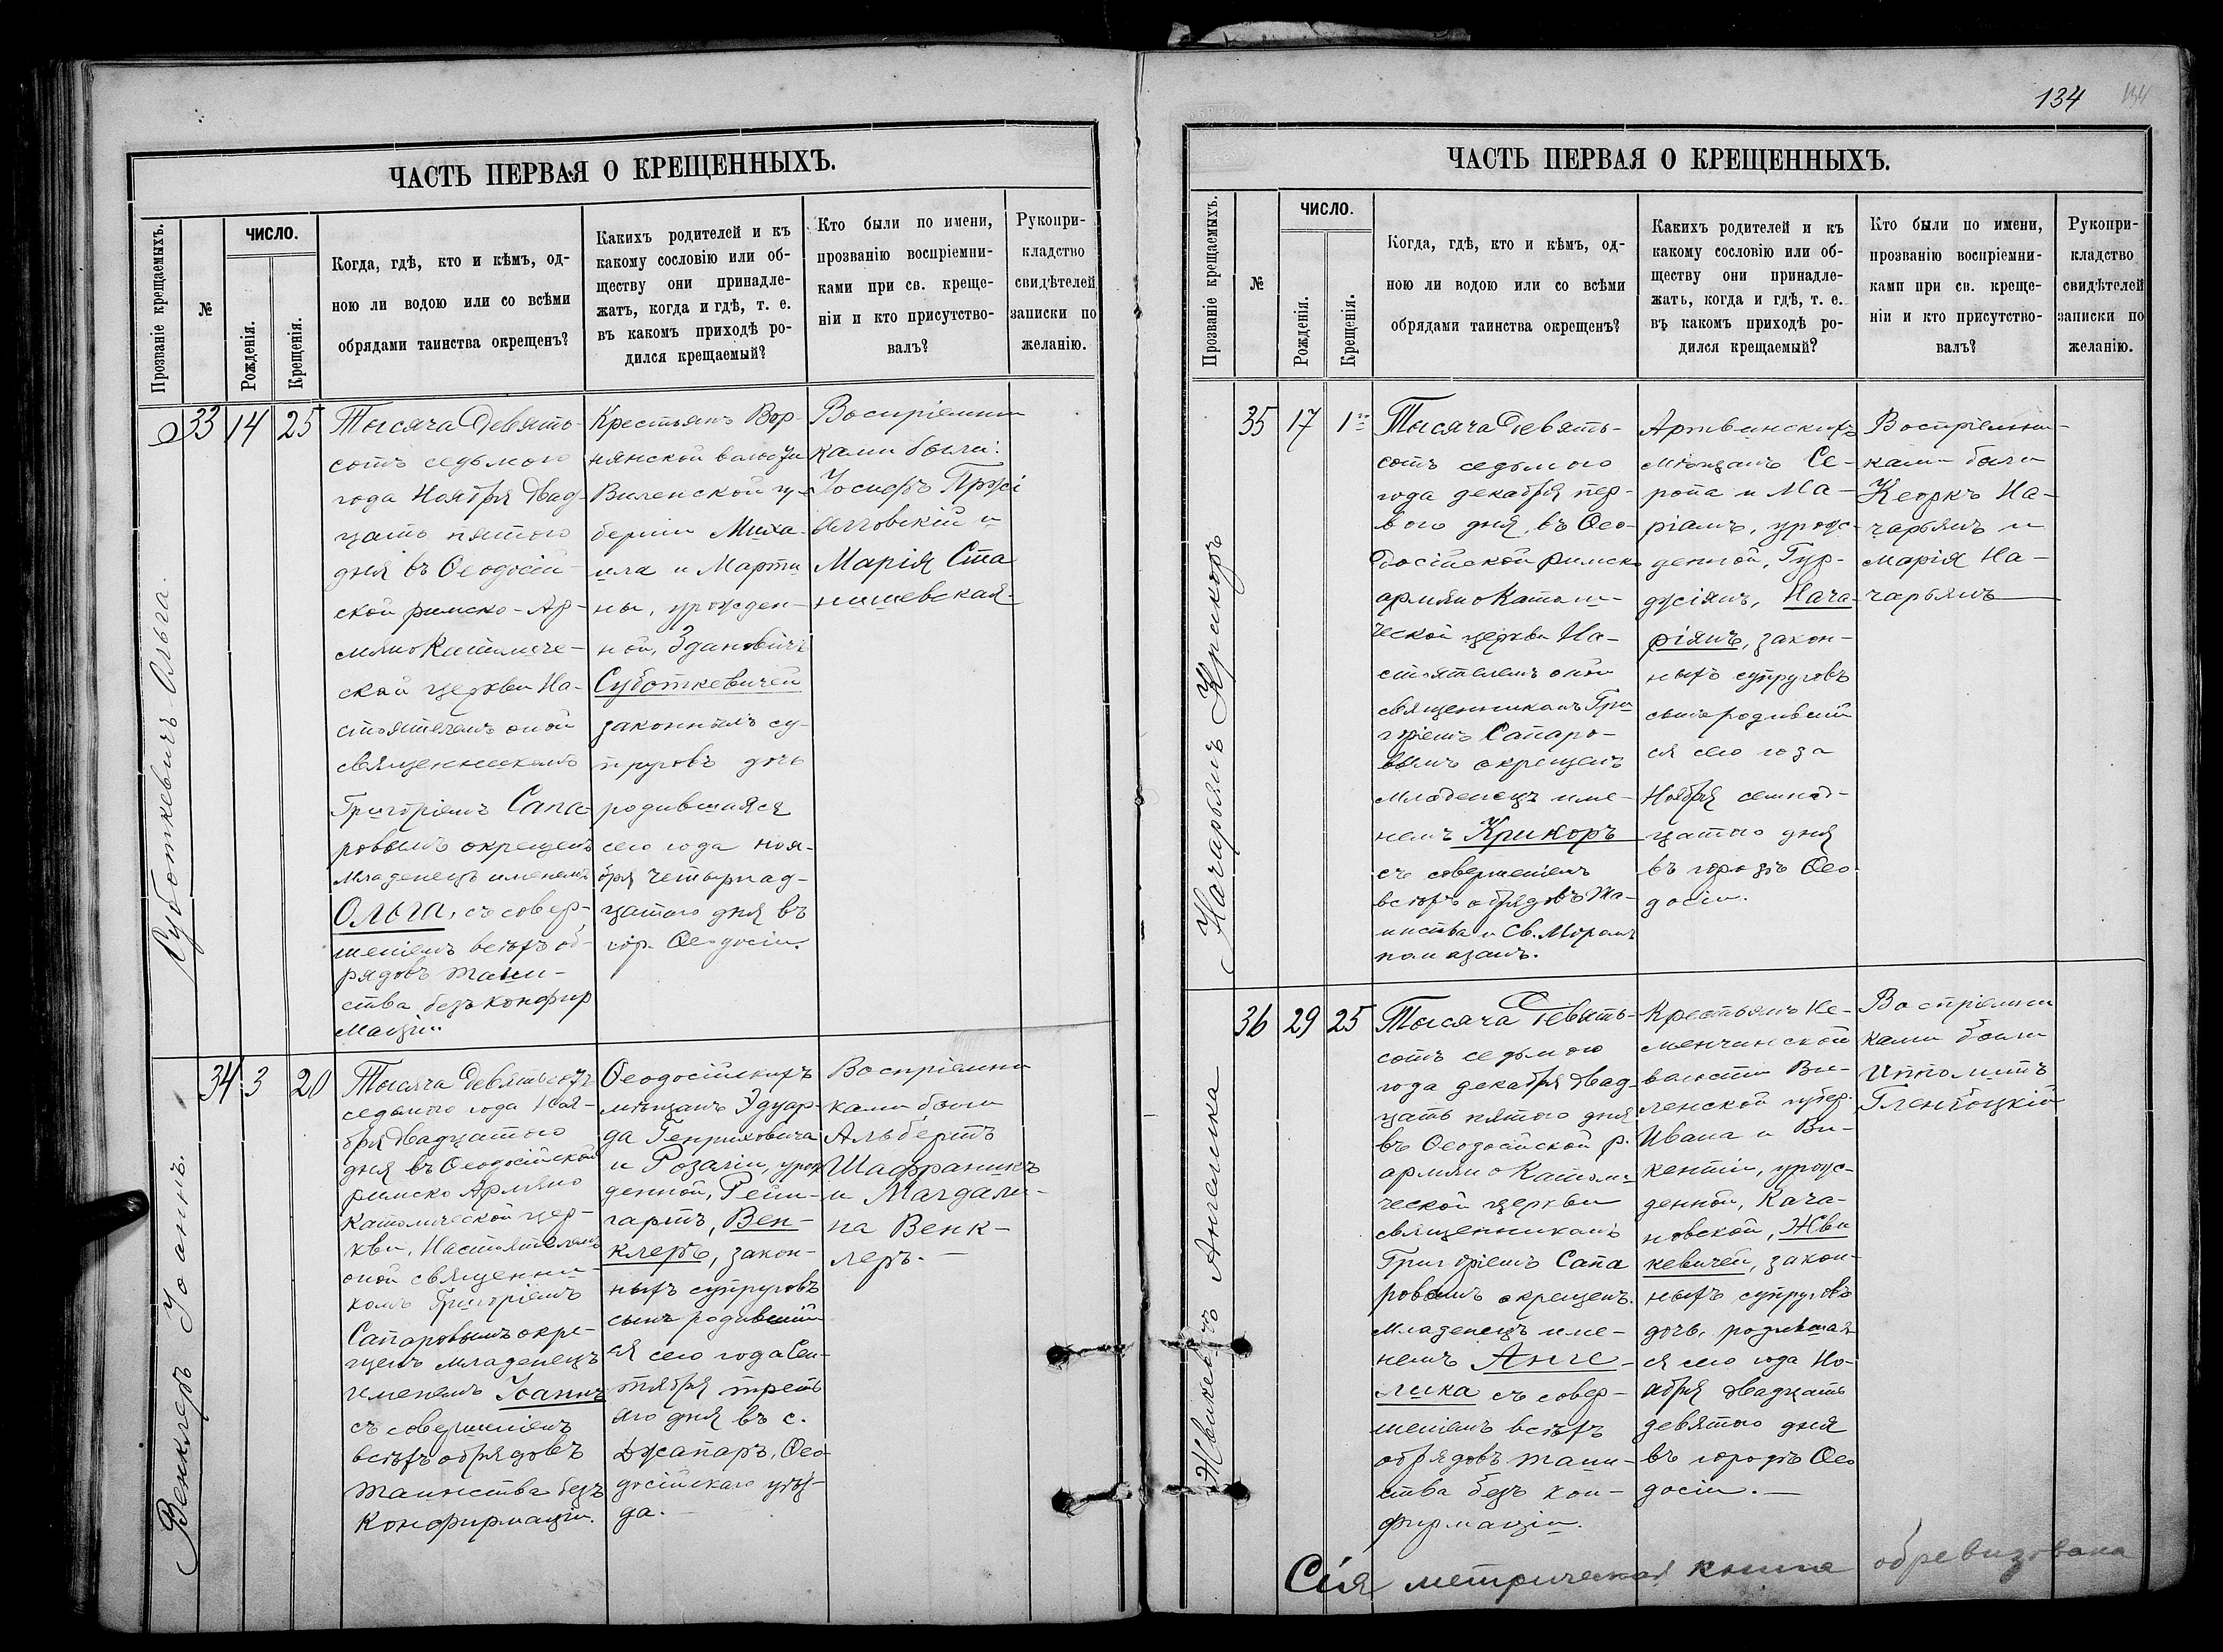 ЧАСТЬ ПЕРВАЯ О КРЕЩЕННЫХЪ.
Прозваніе крещаемыхъ.
№
ЧИСЛО.
Рожденія.
Крещенія.
Когда, гдѣ, кто и кѣмъ, од-
ною ли водою или со всѣми
обрядами таинства окрещенъ?
Какихъ родителей и къ
какому сословію или об-
ществу они принадле-
жатъ, когда и гдѣ, т. е.
въ какомъ приходѣ ро-
дился крещаемый?
Кто были по имени,
прозванію воспріемни-
ками при св. креще-
ніи и кто присутство-
валъ?
Рукопри-
кладство
свидѣтелей
записки по
желанію.
Суботкевичъ Ольга.
33 14 25
Тысяча девять-
сотъ седьмого
года Ноября двад-
цать пятого
дня въ Ѳеодосій-
ской римско-Ар-
мяно Католиче-
ской церкви На-
стоятелемъ оной
священникомъ
Григоріемъ Сапа-
ровымъ окрещенъ
младенецъ именемъ
Ольга, съ совер-
шеніемъ всѣхъ об-
рядовъ таин-
ства безъ конфир
маціи
Крестьянъ Вор-
нянской волости
Виленской гу-
берніи Миха-
ила и Марти
ны, урожден-
ной, Здановичъ
Суботкевичей
законныхъ су-
пруговъ дочь
родившаяся
сего года ноя-
бря четырнад-
цатого дня въ
гор. Ѳеодосіи.
Воспріемни
ками были:
Іосифъ
и
Марія Ста
нишевская
Венклеръ Іоаннъ.
34 3 20
Тысяча девятьсотъ
седьмого года Ноя-
бря двадцатого
дня въ Ѳеодосійской
римско Армяно
Католической цер-
кви, Настоятелемъ
оной священни-
комъ Григоріемъ
Сапаровымъ окре-
щенъ младенецъ
именемъ Іоаннъ
съ совершеніемъ
всѣхъ обрядовъ
таинства безъ
конфирмаціи.
Ѳеодосійскихъ
мѣщанъ Эдуар-
да Генриховича
и Розаліи, урож
денной, Рейн-
гартъ, Вен-
клеръ, закон-
ныхъ супруговъ
сынъ родившій
ся сего года Сен-
тября треть
яго дня въ с.
Джапаръ, Ѳео
досійскаго уѣз-
да.
Воспріемни
ками были
Альбертъ
Шафраникъ
и Магдали-
на Венк-
леръ.
134
134
ЧАСТЬ ПЕРВАЯ О КРЕЩЕННЫХЪ.
Прозваніе крещаемыхъ.
№
ЧИСЛО.
Рожденія.
Крещенія.
Когда, гдѣ, кто и кѣмъ, од-
ною ли водою или со всѣми
обрядами таинства окрещенъ?
Какихъ родителей и къ
какому сословію или об-
ществу они принадле-
жатъ, когда и гдѣ, т. е.
въ какомъ приходѣ ро-
дился крещаемый?
Кто были по имени,
прозванію воспріемни-
ками при св. креще-
ніи и кто присутство-
валъ?
Рукопри-
кладство
свидѣтелей
записки по
желанію.
Начарьянъ Крикоръ
35 17 1го
Тысяча девять-
сотъ седьмого
года декабря пер-
вого дня, въ Ѳео-
досійской римско
армяно Католи-
ческой церкви На-
стоятелемъ оной
священникомъ Гри
горіемъ Сапаро-
вымъ окрещенъ
младенецъ име-
немъ Крикоръ
съ совершеніемъ
всѣхъ обрядовъ Та-
инства и Св. Мѵромъ
помазанъ.
Артвинскихъ
мѣщанъ Се-
ропа и Ма-
ріамъ, урож-
денной, Гур-
джіянъ, Нача-
ріянъ, закон-
ныхъ супруговъ
сынъ родившій
ся сего года
Ноября семнад-
цатого дня
въ городѣ Ѳео
досіи.
Воспріемни-
ками были
Кеоркъ На-
чарьянъ и
Марія На-
чарьянъ
Жвикевичъ Ангелика
36 29 25
Тысяча девять-
сотъ седьмого
года декабря двад-
цать пятого дня
въ Ѳеодосійской р.
армяно Католи
ческой церкви
священникомъ
Григоріемъ Сапа
ровымъ окрещенъ
младенецъ име-
немъ Анге-
лика съ совер-
шеніемъ всѣхъ
обрядовъ таин-
ства безъ кон-
фирмаціи.
Крестьянъ Не-
менчинской
волости Ви-
ленской губер.
Ивана и Ви-
кентіи, урож-
денной, Кача-
новской, Жви
кевичей, закон-
ныхъ супруговъ
дочь, родившая
ся сего года Но-
ября двадцать
девятого дня
въ городѣ Ѳео
досіи.
Воспріемни
ками были
Ипполитъ
Гленбоцкій
Сія метрическая книга обревизована